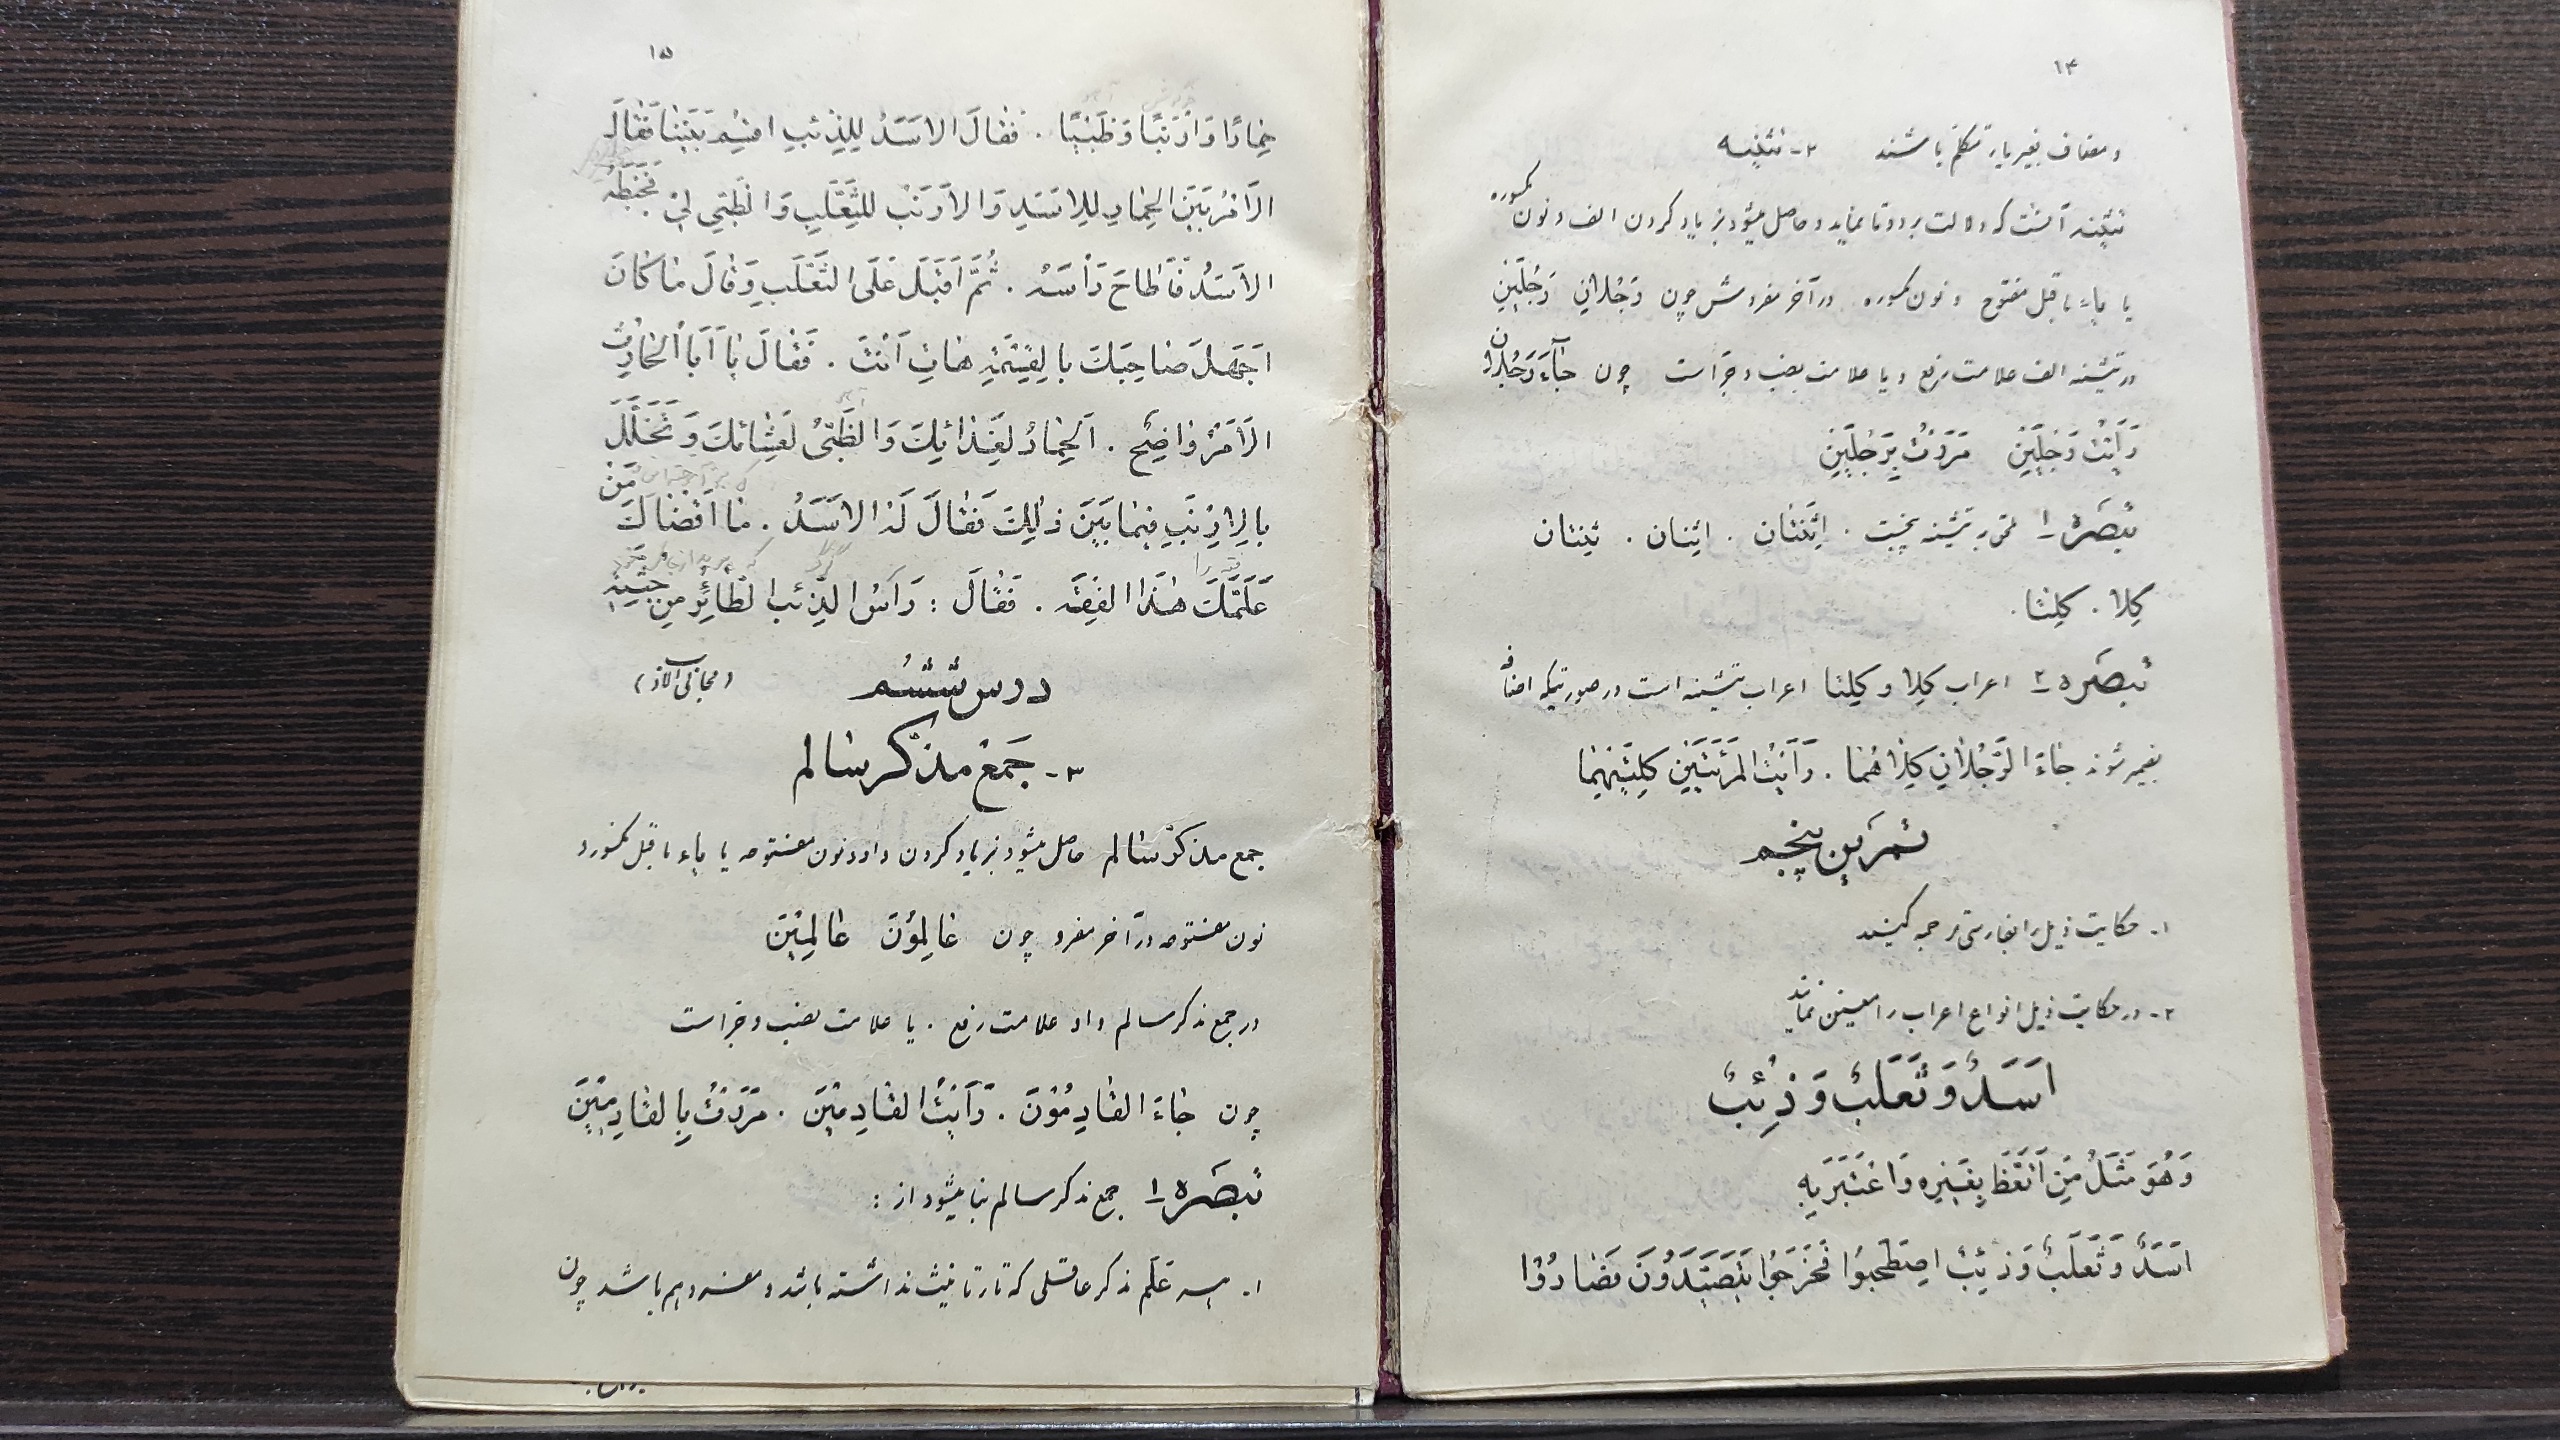 ۱۴
و مضاف بغیر یاء متکلم باشند ۲- تثنیه
تثنیه آنست که دلالت بر دو تا نماید و حاصل میشود بزیاد کردن الف و نون مکسوره
یا یاء ماقبل مفتوح و نون مکسوره در آخر مفردش چون رَجُلانِ رَجُلَیْنِ
در تثنیه الف علامت رفع و یا علامت نصب و جر است چون جَاءَ رَجُلانِ
رَأَیْتُ رَجُلَیْنِ مَرَرْتُ بِرَجُلَیْنِ
تبصَره ۱ ملحق به تثنیه پنج است . اِثْنَتَان . اثِنان . ثِنتان
کِلا . کِلتا .
تبصَره ۲ اعراب کِلا و کِلتا اعراب تثنیه است در صورتیکه اضافه
بضمیر شوند جاءَ الرَّجُلانِ کِلاهُما . رَأَیْتُ المَرْئَتَیْنِ کِلْتَیْهِما
تمرین پنجم
۱- حکایت ذیل را بفارسی ترجمه کنید
۲- در حکایت ذیل انواع اعراب را معین نمائید
اَسَدٌ وَ ثَعْلَبٌ وَ ذِئبٌ
وَ هُوَ مَثَلُ مَنِ اتَّعَظَ بِغَیْرِهِ وَ اعْتَبَرَ بِهِ
اَسَدٌ وَ ثَعْلَبٌ وَ ذِئبٌ اصْطَحَبُوا فَخَرَجُوا یَتَصَیَّدُونَ فَصَادُوْا
۱۵
حِمارًا وَ اَرْنَبًا وَ ظَبْیًا . فَقالَ الاَسَدُ لِلذِّئبِ اقْسِمْ بَیْنَنا فَقالَ
الاَمْرُ بَیِّنٌ الحِمارُ لِلاَسَدِ وَ الاَرْنَبُ لِلثَّعْلَبِ وَ الظَّبْیُ لِیْ فَخَبَطَهُ
الاَسَدُ فَاَطاحَ رَأسَهُ . ثُمَّ اَقْبَلَ عَلَی الثَّعْلَبِ وَ قالَ ما کانَ
اَجْهَلَ صاحِبَکَ بِالقِسْمَةِ هاتِ اَنْتَ . فَقالَ یا اَبَا الحارِثِ
الاَمْرُ واضِحٌ . اَلحِمارُ لِغَذائِکَ وَ الظَّبْیُ لِعَشائِکَ وَ تَخَلَّلْ
بِالاَرْنَبِ فِیما بَیْنَ ذٰلِکَ فَقالَ لَهُ الاَسَدُ . ما اَقْضاکَ مَنْ
عَلَّمَکَ هٰذَا الفِقْهَ . فَقالَ : رَأسُ الذِّئبِ الطّائِرُ مِنْ جُثَّتِهِ
درس ششم (مجانی الادب)
۳- جَمْع مذکّر سالم
جمع مذکّر سالم حاصل میشود بزیاد کردن واو و نون مفتوحه یا یاء ماقبل مکسور و
نون مفتوحه در آخر مفرد چون عالِمُوْنَ عالِمِیْنَ
در جمع مذکر سالم واو علامت رفع . یا علامت نصب و جر است
چون جاءَ القادِمُوْنَ . رَأَیْتُ القادِمِیْنَ . مَرَرْتُ بِالقادِمِیْنَ
تبصَره ۱ جمع مذکر سالم بنا میشود از :
۱- هر عَلَم مذکر عاقلی که تاء تأنیث نداشته باشد و مفرد هم باشد چون